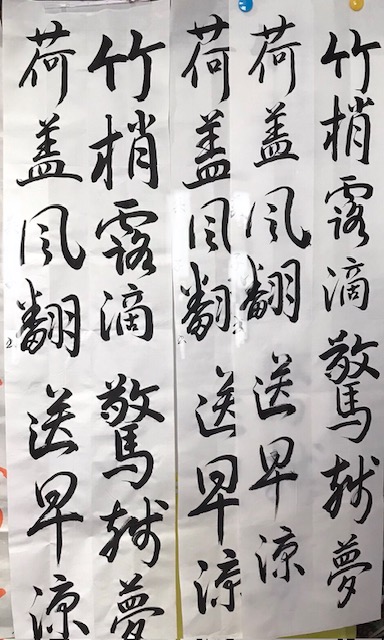 竹梢露滴驚残夢
荷盖風翻送早涼
荷盖風翻送早涼
竹梢露滴驚残夢
荷盖風翻送早涼